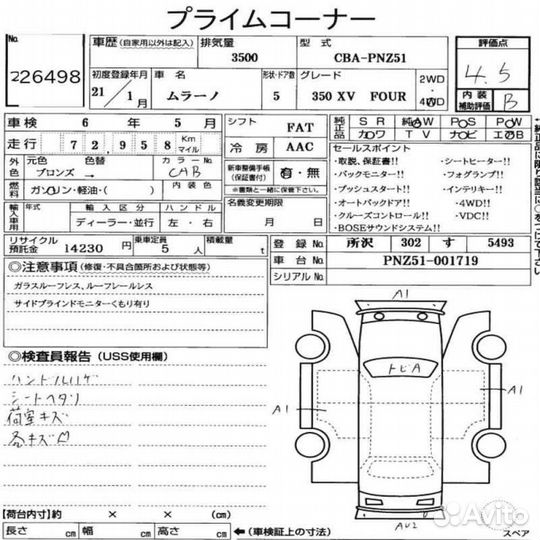 プライムコーナー
No.
26498
車歴 (自家用以外は記入)
排気量
3500
型式
CBA-PNZ51
評価点
4.5
初度登録年月
21 / 1月
車名
ムラーノ
形状・ドア数
5
グレード
350 XV FOUR
2WD
・
4WD
内装
補助評価
B
車検 6年 5月
シフト FAT
純正品
SR 純AW PS PW
カワ TV ナビ エアB
走行 72,958 Km マイル
冷房 AAC
セールスポイント
・取説、保証書!!
・バックモニター!!
・プッシュスタート!!
・オートバックドア!!
・クルーズコントロール!!
・BOSEサウンドシステム!!
・シートヒーター!!
・フォグランプ!!
・インテリキー!!
・4WD!!
・VDC!!
外色
元色 色替
ブロンズ →
カラーNo.
CAB
新車整備手帳
(保証書付)
有・無
※書類と一緒に保管して下さい。
燃料
ガソリン・軽油・( )
内装色
名義変更期限
月 日
輸入車用
年式
輸入区分
ディーラー・並行
ハンドル
左・右
リサイクル
預託金
14230 円
乗車定員
5 人
積載量
t
登録No. 所沢 302 す 5493
車台No. PNZ51-001719
シリアルNo.
◎注意事項 (修復・不具合箇所および状態等)
ガラスルーフレス、ルーフレールレス
サイドブラインドモニターくもり有り
◎検査員報告 (USS使用欄)
シートヘタリ
荷室キズ
各キズ凹
A1
トビA
A1
A1
AU2
スペア
【荷台内寸】約 × × (cm)
長さ cm 幅 cm 高さ cm
(車検証上の寸法)
Avito